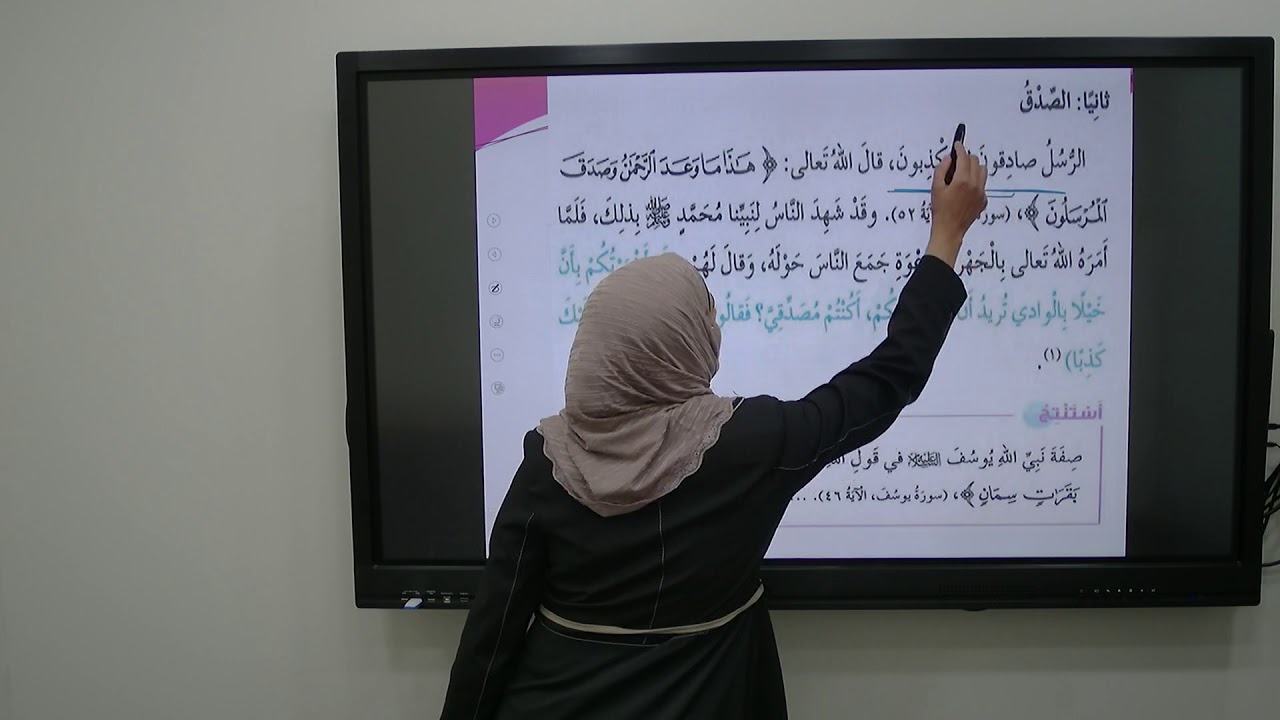 ثانِيًا: الصِّدْقُ
الرُّسُلُ صادِقونَ يَكْذِبونَ، قالَ اللهُ تَعالى: ﴿ هَٰذَا مَا وَعَدَ ٱلرَّحْمَٰنُ وَصَدَقَ
ٱلْمُرْسَلُونَ ﴾، (سورَةُ ٥٢). وقَدْ شَهِدَ النَّاسُ لِنَبِيِّنا مُحَمَّدٍ ﷺ بِذلِكَ، فَلَمَّا
أَمَرَهُ اللهُ تَعالى بِالْجَهْرِ جَمَعَ النَّاسَ حَوْلَهُ، وَقالَ لَهُمْ: بِأَنَّ
خَيْلًا بِالْوادي تُريدُ أَنْ أَكُنْتُمْ مُصَدِّقِيَّ؟ فَقالُوا
كَذِبًا) (١).
أَسْتَنْتِجُ
صِفَةَ نَبِيِّ اللهِ يُوسُفَ في قَوْلِ
بَقَرَٰتٍ سِمَانٍ ﴾، (سورَةُ يوسُفَ، الْآيَةُ ٤٦). ...